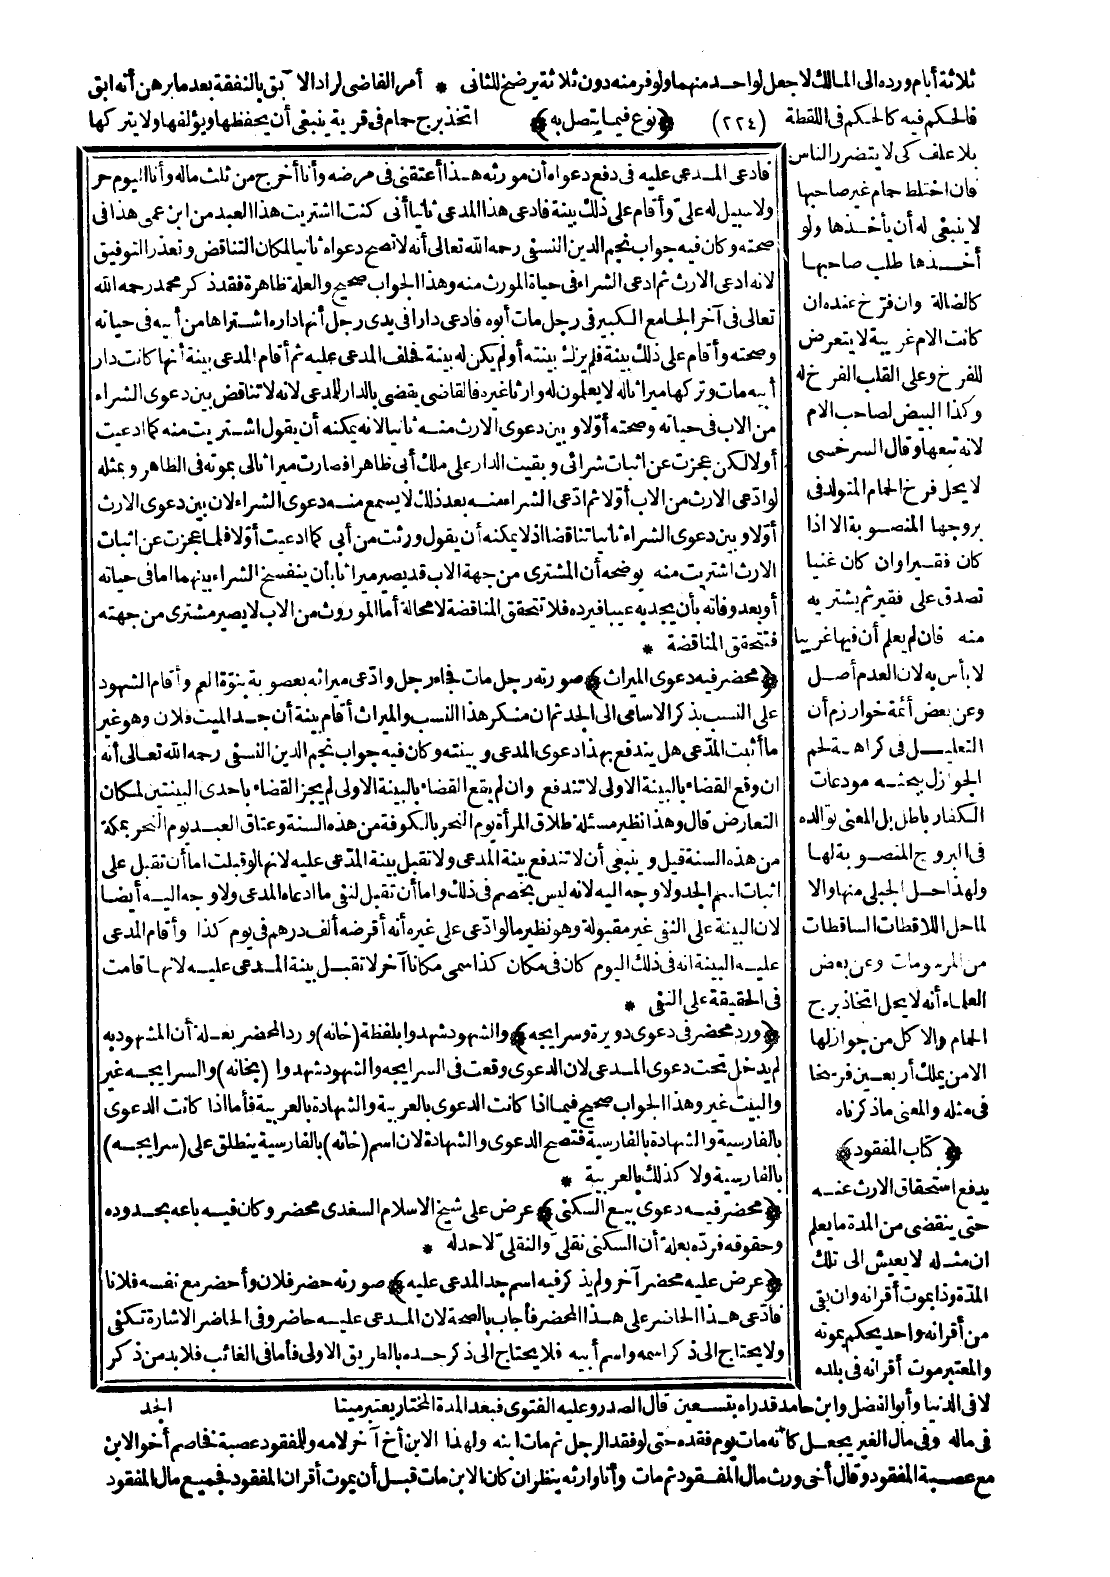 ثلاثة أيام ورده الى المالك لا جعل لواحد منهما ولو فر منه دون ثلاثة يرضخ للثانى * أمر القاضى لراد الآبق بالنفقة بعد ما برهن أنه ابق
فالحكم فيه كالحكم فى اللقطة (٢٢٤) ﴿نوع فيما يتصل به﴾ اتخذ برج حمام فى قرية ينبغى أن يحفظها ويؤلفها ولا يتركها
بلا علف كى لا يتضرر الناس
فان اختلط حمام غير صاحبها
لا ينبغى له أن يأخذها ولو
أخذها طلب صاحبها
كالضالة وان فرّخ عنده ان
كانت الام غريبة لا يتعرض
للفرخ وعلى القلب الفرخ له
وكذا البيض لصاحب الام
لانه تبعها وقال السرخسى
لا يحل فرخ الحمام المتولد فى
بروجها المنصوبة الا اذا
كان فقيرا وان كان غنيا
تصدق على فقير ثم يشتريه
منه فان لم يعلم أن فيها غريبا
لا بأس به لان العدم أصل
وعن بعض أئمة خوارزم أن
التعليل فى كراهة لحم
الجوازل بجثه مودعات
الكفار باطل بل المعنى توالده
فى البروج المنصوبة لها
ولهذا حل الجبلى منها والا
لما حل اللاقطات الساقطات
من المرمومات وعن بعض
العلماء أنه لا يحل اتخاذ برج
الحمام والاكل من جوازلها
الا من يملك أربعين فرسخا
فى مثله والمعنى ما ذكرناه
﴿كتاب المفقود﴾
يدفع استحقاق الارث عنه
حتى ينقضى من المدة ما يعلم
ان مثله لا يعيش الى تلك
المدة وذا بموت أقرانه وان بقى
من أقرانه واحد يحكم بموته
والمعتبر موت أقرانه فى بلده
فادعى المدعى عليه فى دفع دعواه أن مورثه هذا أعتقنى فى مرضه وأنا أخرج من ثلث ماله وأنا اليوم حر
ولا سبيل له علىّ وأقام على ذلك بينة فادعى هذا المدعى ثانيا أنى كنت اشتريت هذا العبد من ابن عمى هذا فى
صحته وكان فيه جواب نجم الدين النسفى رحمه الله تعالى أنه لا تصح دعواه ثانيا لمكان التناقض وتعذر التوفيق
لانه ادعى الارث ثم ادعى الشراء فى حياة المورث منه وهذا الجواب صحيح والعلة ظاهرة فقد ذكر محمد رحمه الله
تعالى فى آخر الجامع الكبير فى رجل مات أبوه فادعى دارا فى يدى رجل أنها داره اشتراها من أبيه فى حياته
وصحته وأقام على ذلك بينة فلم يزك بينته أو لم يكن له بينة فحلف المدعى عليه ثم أقام المدعى بينة أنها كانت دار
أبيه مات وتركها ميراثا له لا يعلمون له وارثا غيره فالقاضى يقضى بالدار للمدعى لانه لا تناقض بين دعوى الشراء
من الاب فى حياته وصحته أوّلا وبين دعوى الارث منه ثانيا لانه يمكنه أن يقول اشتريت منه كما ادعيت
أولا لكن عجزت عن اثبات شرائى وبقيت الدار على ملك أبى ظاهرا فصارت ميراثا لى بموته فى الظاهر وبمثله
لو ادّعى الارث من الاب أوّلا ثم ادّعى الشراء منه بعد ذلك لا يسمع منه دعوى الشراء لان بين دعوى الارث
أوّلا وبين دعوى الشراء ثانيا تناقضا اذ لا يمكنه أن يقول ورثت من أبى كما ادعيت أوّلا فلما عجزت عن اثبات
الارث اشتريت منه يوضحه أن المشترى من جهة الاب قد يصير ميراثا بأن ينفسخ الشراء بينهما اما فى حياته
أو بعد وفاته بأن يجد به عيبا فيرده فلا تتحقق المناقضة لا محالة أما الموروث من الاب لا يصير مشترى من جهته
فتتحقق المناقضة *
﴿محضر فيه دعوى الميراث﴾ صورته رجل مات فجاء رجل وادّعى ميراثه بعصوبة بنوّة العم وأقام الشهود
على النسب بذكر الاسامى الى الجد ثم ان منكر هذا النسب والميراث أقام بينة أن جد الميت فلان وهو غير
ما أثبت المدّعى هل يندفع بهذا دعوى المدعى وبينته وكان فيه جواب نجم الدين النسفى رحمه الله تعالى أنه
ان وقع القضاء بالبينة الاولى لا تندفع وان لم يقع القضاء بالبينة الاولى لم يجز القضاء باحدى البينتين لمكان
التعارض قال وهذا نظير مسئلة طلاق المرأة يوم النحر بالكوفة من هذه السنة وعتاق العبد يوم النحر بمكة
من هذه السنة قيل وينبغى أن لا تندفع بينة المدعى ولا تقبل بينة المدّعى عليه لانها لو قبلت اما أن تقبل على
اثبات اسم الجد ولا وجه اليه لانه ليس بخصم فى ذلك واما أن تقبل لنفى ما ادعاه المدعى ولا وجه اليه أيضا
لان البينة على النفى غير مقبولة وهو نظير ما لو ادّعى على غيره أنه أقرضه ألف درهم فى يوم كذا وأقام المدعى
عليه البينة انه فى ذلك اليوم كان فى مكان كذا سمى مكانا آخر لا تقبل بينة المدعى عليه لانها قامت
فى الحقيقة على النفى *
﴿ورد محضر فى دعوى دويرة وسرايجه﴾ والشهود شهدوا بلفظة (خانه) ورد المحضر بعلة أن المشهود به
لم يدخل تحت دعوى المدعى لان الدعوى وقعت فى السرايجه والشهود شهدوا (بخانه) والسرايجه غير
والبيت غير وهذا الجواب صحيح فيما اذا كانت الدعوى بالعربية والشهادة بالعربية فأما اذا كانت الدعوى
بالفارسية والشهادة بالفارسية فتصح الدعوى والشهادة لان اسم (خانه) بالفارسية ينطلق على (سرايجه)
بالفارسية ولا كذلك بالعربية *
﴿محضر فيه دعوى بيع السكنى﴾ عرض على شيخ الاسلام السغدى محضر وكان فيه باعه بحدوده
وحقوقه فردّه بعلة أن السكنى نقلىّ والنقلىّ لا حد له *
﴿عرض عليه محضر آخر ولم يذكر فيه اسم جد المدعى عليه﴾ صورته حضر فلان وأحضر مع نفسه فلانا
فادّعى هذا الحاضر على هذا المحضر فأجاب بالصحة لان المدعى عليه حاضر وفى الحاضر الاشارة تكفى
ولا يحتاج الى ذكر اسمه واسم أبيه فلا يحتاج الى ذكر جده بالطريق الاولى فأما فى الغائب فلا بد من ذكر
الجد
لا فى الدنيا وأبو الفضل وابن حامد قدراه بتسعين قال الصدر وعليه الفتوى فبعد المدة المختار يعتبر ميتا
فى ماله وفى مال الغير يجعل كأنه مات يوم فقده حتى لو فقد الرجل ثم مات ابنه ولهذا الابن أخ آخر لامه وللمفقود عصبة فخاصم أخو الابن
مع عصبة المفقود وقال أخى ورث مال المفقود ثم مات وأنا وارثه ينظر ان كان الابن مات قبل أن يموت أقران المفقود فجميع مال المفقود